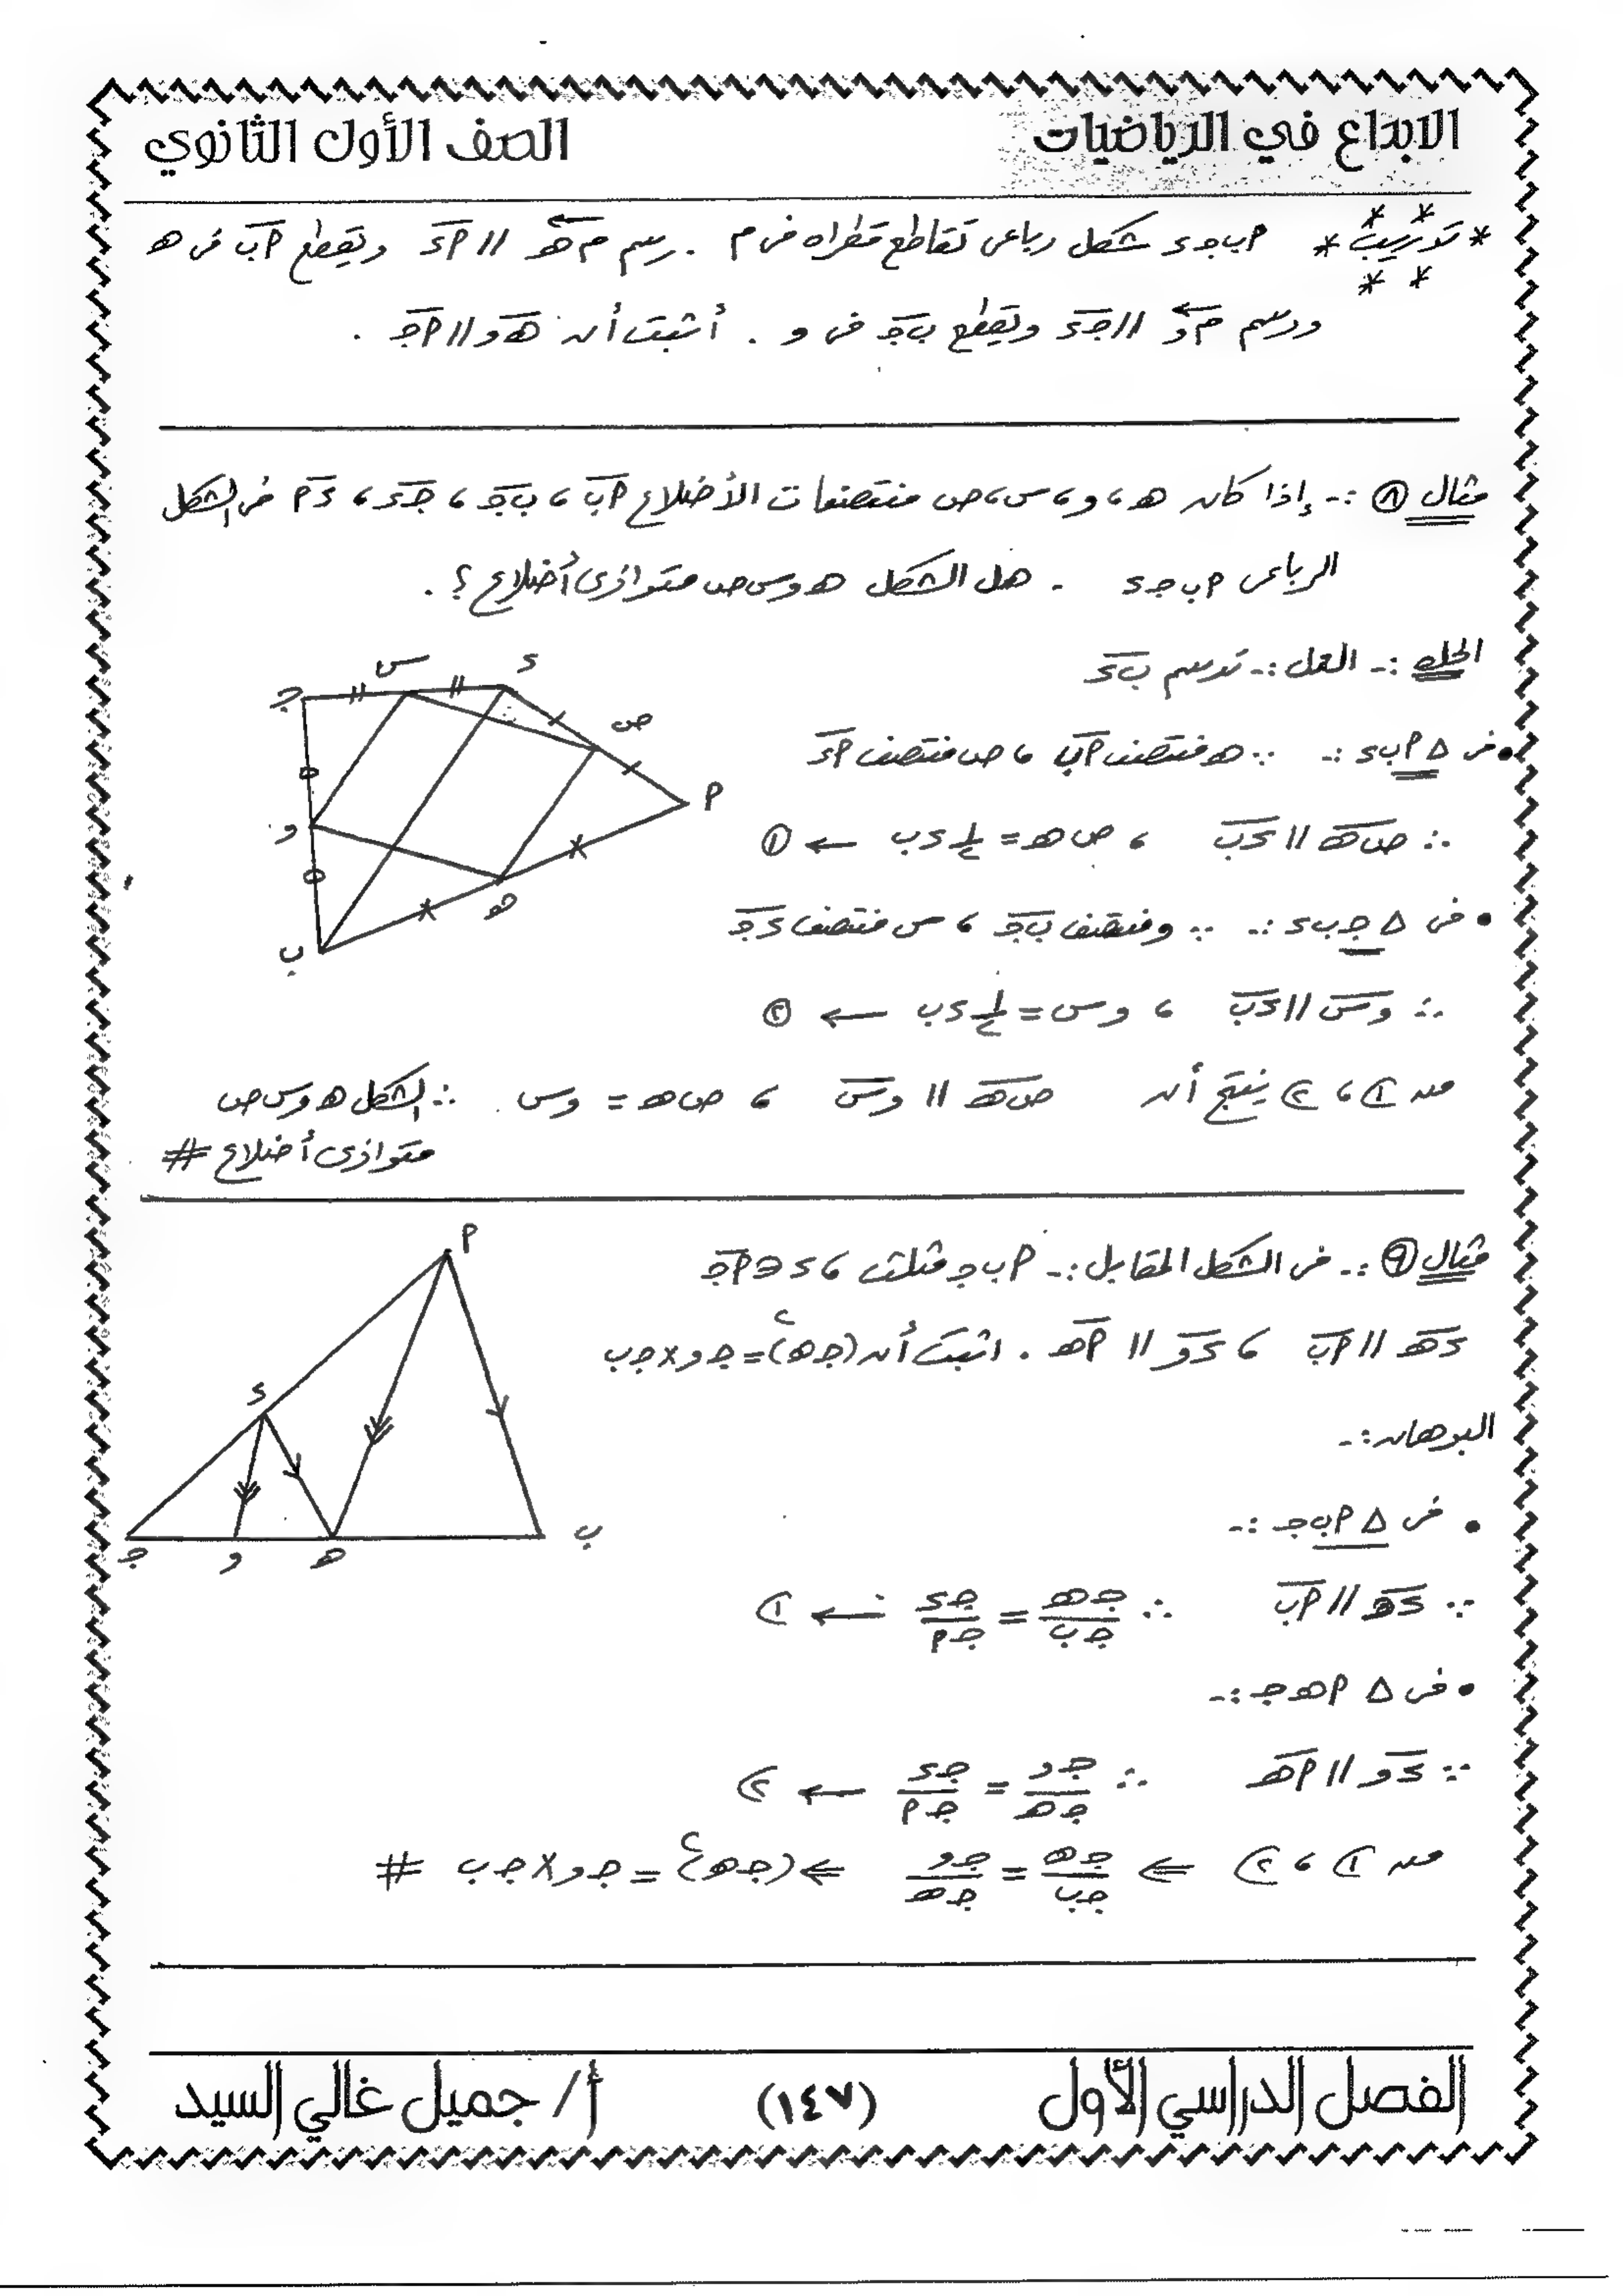 الابداع في الرياضيات
الصف الأول الثانوي
* تدريب * أ ب جـ د شكل رباعى تقاطع قطراه فى م . رسم م هـ // أ د ويقطع أ ب فى هـ
ورسم م و // جـ د ويقطع ب جـ فى و . أثبت أن هـ و // أ جـ .
مثال ⑧ :- إذا كان هـ ، و ، س ، ص منتصفات الأضلاع أ ب ، ب جـ ، جـ د ، د أ فى الشكل
الرباعى أ ب جـ د . هل الشكل هـ و س ص متوازى أضلاع ؟ .
الحل :- العمل :- نرسم ب د
جـ س د ص أ و هـ ب
• فى △ أ ب د :- ∵ هـ منتصف أ ب ، ص منتصف أ د
∴ ص هـ // د ب ، ص هـ = ١/٢ د ب ← ①
• فى △ جـ ب د :- ∵ و منتصف ب جـ ، س منتصف د جـ
∴ و س // د ب ، و س = ١/٢ د ب ← ②
من ١ ، ٢ ينتج أن ص هـ // و س ، ص هـ = و س ∴ الشكل هـ و س ص
متوازى أضلاع #
مثال ⑨ :- فى الشكل المقابل :- أ ب جـ مثلث ، د ∈ أ جـ
د هـ // أ ب ، د و // أ هـ . اثبت أن (جـ هـ)٢ = جـ و × جـ ب
أ د جـ و هـ ب
البرهان :-
• فى △ أ ب جـ :-
∵ د هـ // أ ب ∴ جـ هـ / جـ ب = جـ د / جـ أ ← ١
• فى △ أ هـ جـ :-
∵ د و // أ هـ ∴ جـ و / جـ هـ = جـ د / جـ أ ← ٢
من ١ ، ٢ ⇐ جـ هـ / جـ ب = جـ و / جـ هـ ⇐ (جـ هـ)٢ = جـ و × جـ ب #
الفصل الدراسي الأول
(١٤٧)
أ / جميل غالي السيد